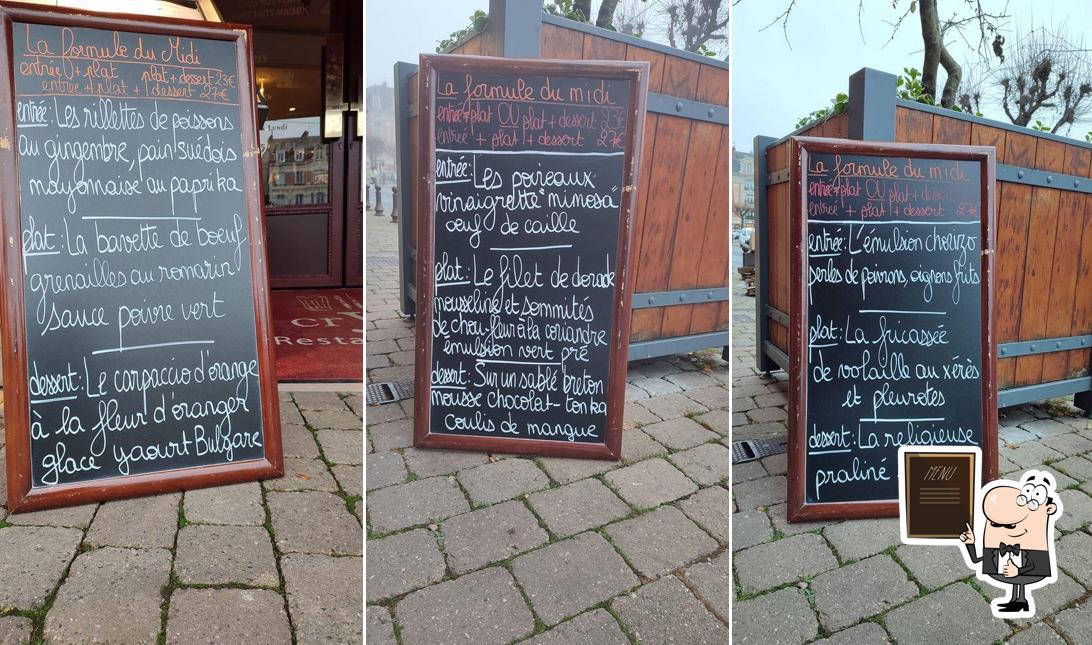 La formule du Midi
entrée + plat plat + dessert 23€
entrée + plat + dessert 27€
entrée: Les rillettes de poissons
au gingembre, pain suédois
mayonnaise au paprika
plat: La bavette de boeuf
grenailles au romarin
sauce poivre vert
dessert: Le carpaccio d'orange
à la fleur d'oranger
glace yaourt Bulgare
FAITS MAISON
Lundi
Resta
La formule du midi
entrée+plat OU plat + dessert 23€
entrée + plat + dessert 27€
entrée: Les poireaux
vinaigrette "mimosa"
oeuf de caille
plat: Le filet de dorade
mousseline et sommités
de chou-fleur à la coriandre
émulsion vert pré
dessert: Sur un sablé breton
mousse chocolat-tonka
coulis de mangue
La formule du midi
entrée+plat OU plat + dessert
entrée + plat + dessert 27€
entrée: L'émulsion chorizo
perles de poivrons, oignons frits
plat: La fricassée
de volaille au xérès
et pleurotes
dessert: La religieuse
praliné
MENU